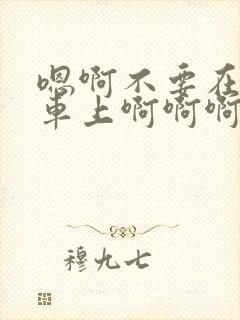 嗯啊不要在
車上啊啊啊
穆九七